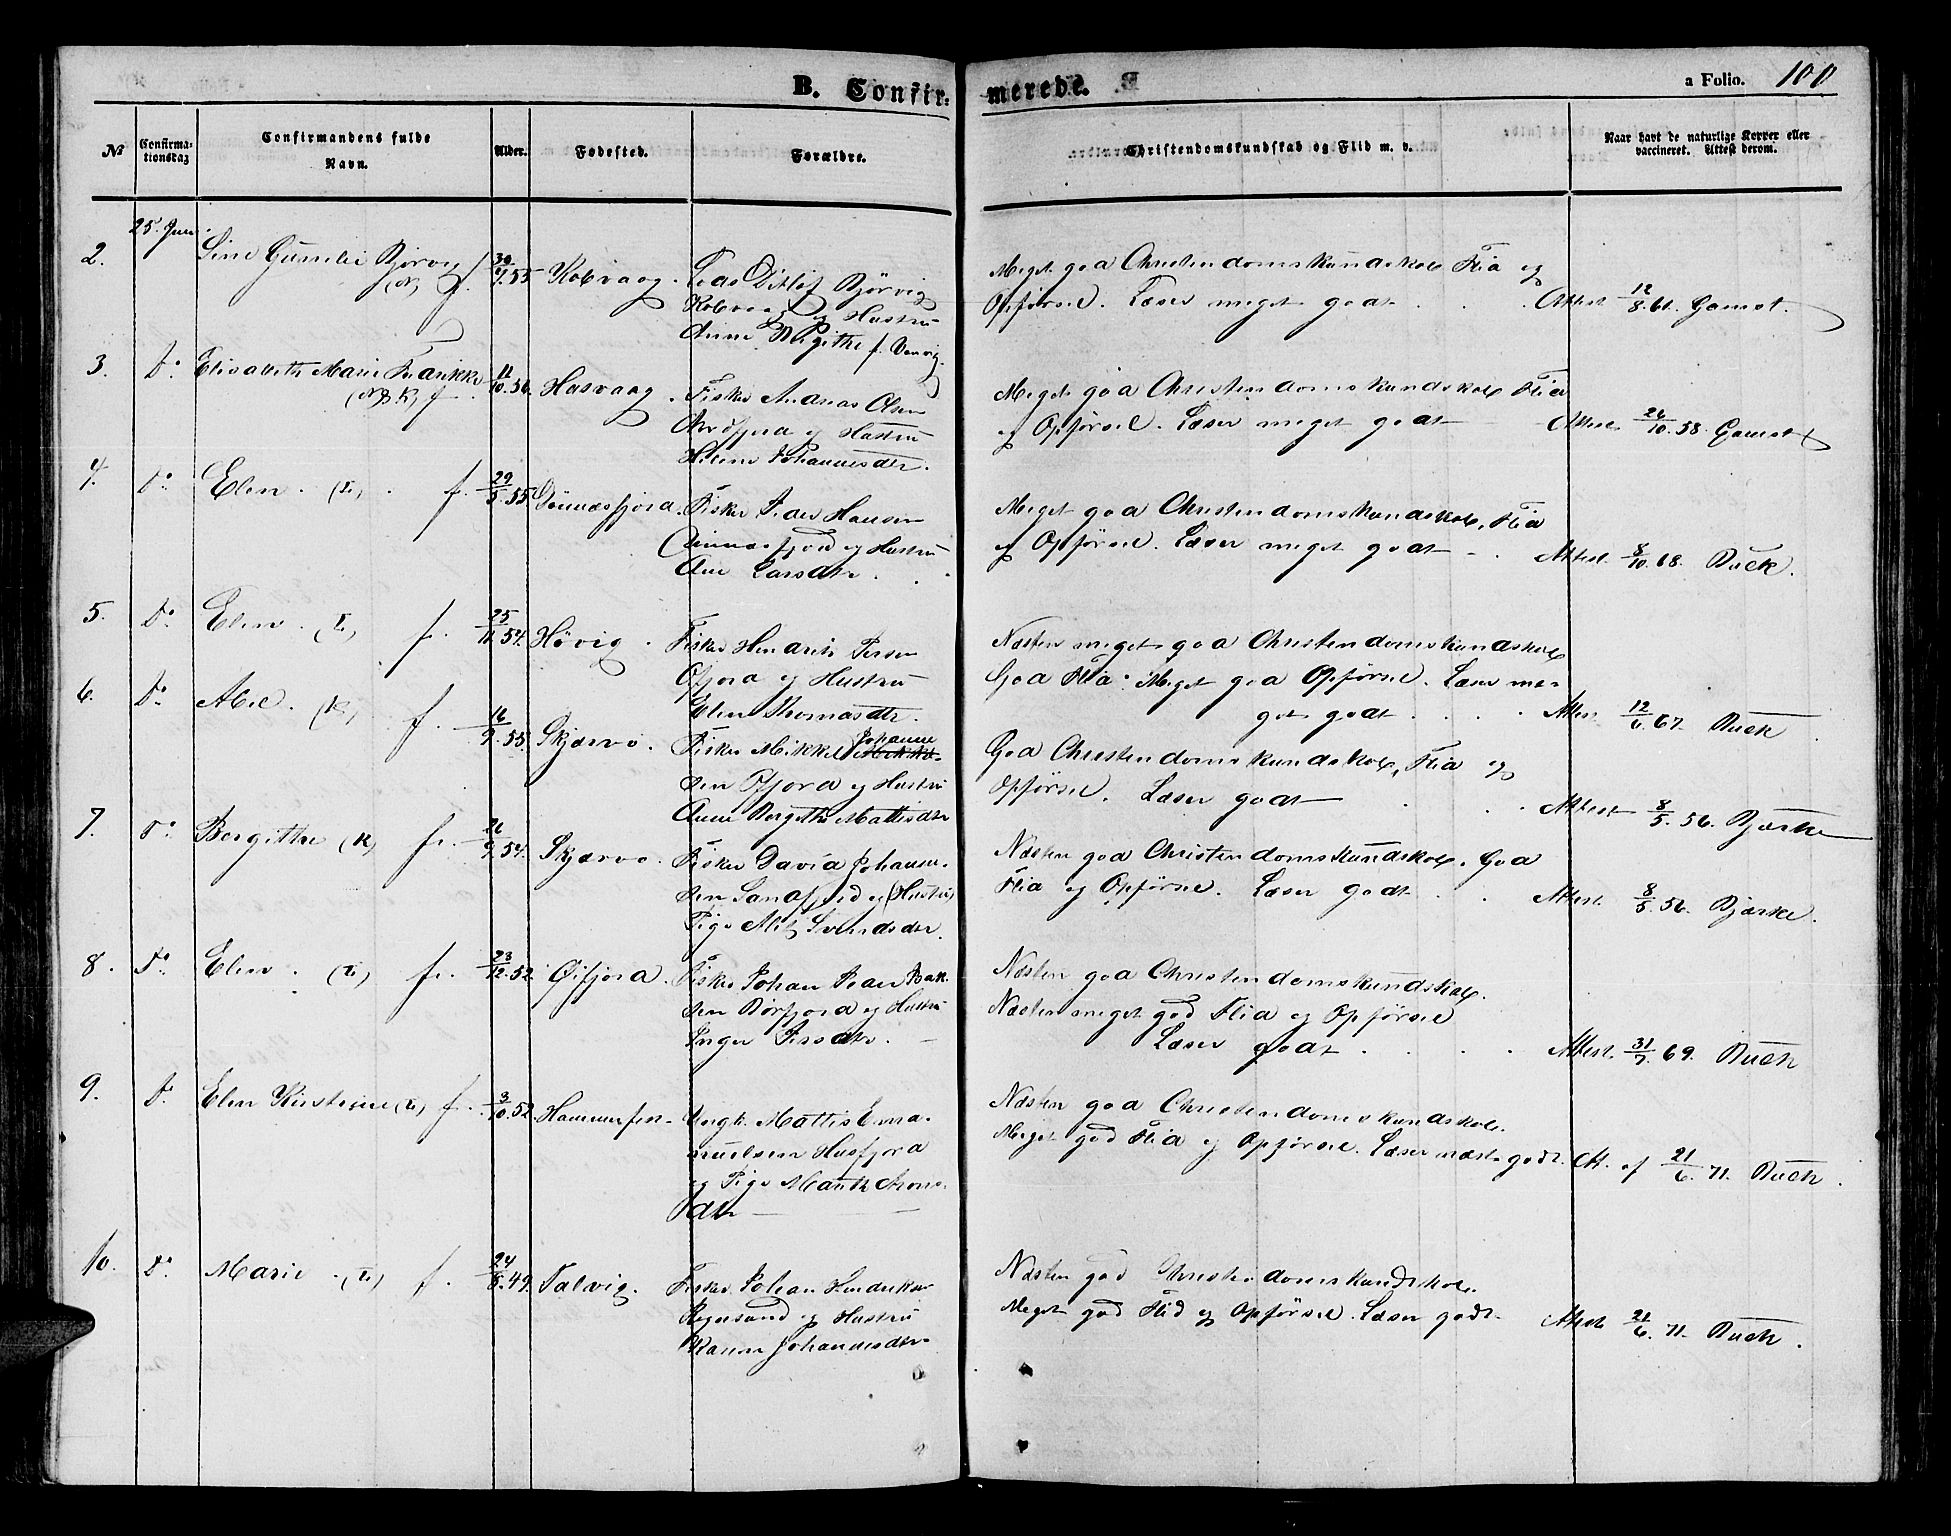 B. Confir-
merede.
a Folio. 100
No
Confirma-
tionsdag
Confirmandens fulde
Navn.
Alder.
Fødested.
Forældre.
Christendomskundskab og Flid m. v.
Naar havt de naturlige Kopper eller
vaccineret. Attest derom.
25. Juni
2. Line Gurelie Bjørvig (N) f. 30/9.55 Kobvaag. Ditlef Bjørvig
Kobvaag og Hustru
Anne Birgithe f.
Meget god Christendomskundskab Flid og
Opførsel. Læser meget godt. Attest 12/8.61. Gamst.
3. Do Elisabeth Marie Fredrikke f. 11/10.56. Hasvaag. Fisker Andreas Olsen
og Hustru
Helene Johannesdtr.
Meget god Christendomskundskab Flid
og Opførsel. Læser meget godt Attest 26/10.58. Gamst
4. Do Elen. (L) f. 29/5.55. Dønnesfjord. Fisker Peder Hansen
Dønnesfjord og Hustru
Ane Larsdtr.
Meget god Christendomskundskab, Flid
og Opførsel. Læser meget godt Attest. 8/10.68. Buck.
5. Do Elen. (L) f. 25/11.54. Høvig. Fisker Hendrik Persen
Ofjord og Hustru
Elen Thomasdtr.
Næsten meget god Christendomskundskab
God Flid. Meget god Opførsel. Læser me-
get godt Attest 12/6.67. Buck
6. Do Abel. (K) f. 16/9.55. Skjervø. Fisker Mikkel Johanne
sen Ofjord og Hustru
Anne Bergithe Mattisdtr
God Christendomskundskab, Flid og
Opførsel. Læser godt Attest 8/5.56. Bjerke
7. Do Bergitthe (K) f. 26/9.54. Skjervø. Fisker David Johanne-
sen Sandfjord og (Hustru)
Pige Alet Svendsdtr.
Næsten god Christendomskundskab. God
Flid og Opførsel. Læser godt Attest. 8/5.56. Bjerke.
8. Do Elen. (L) f. 23/12.52. Øifjord. Fisker Johan Peder Bak
sen Børfjord og Hustru
Inger Persdtr.
Næsten god Christendomskundskab.
Næsten meget god Flid og Opførsel
Læser godt Attest. 31/7.69. Buck
9. Do Elen Kirstine (L) f. 3/10.52. Hammerfest Ungk. Mattis Ema-
nuelsen Husfjord
og Pige Marith Arons-
dtr
Næsten god Christendomskundskab.
Meget god Flid og Opførsel. Læser næst godt. Att. af 21/6.71. Buck.
10. Do Marie. (L) f. 24/8.49. Talvig. Fisker Johan Hendriksen
og Hustru
Karen Johannesdtr
Næsten god Christendomskundskab.
Meget god Flid og Opførsel. Læser godt. Attest 21/6.71. Buck.